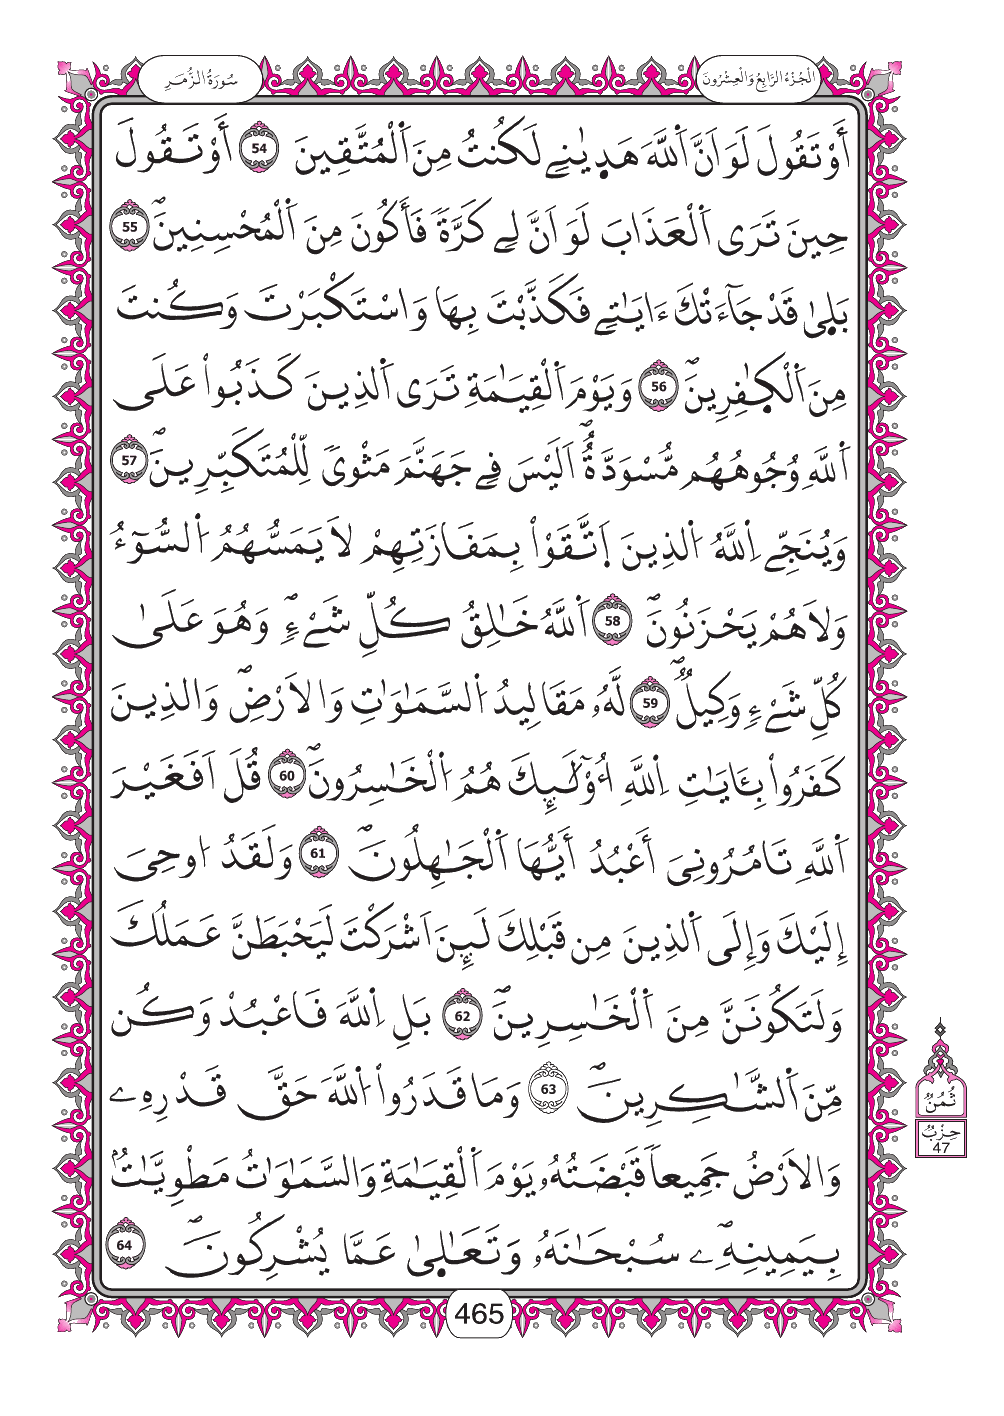 سُورَةُ الزُّمَرِ
الْجُزْءُ الرَّابِعُ وَالْعِشْرُونَ
أَوْ تَقُولَ لَوَ اَنَّ اَ۬للَّهَ هَد۪يٰنِے لَكُنتُ مِنَ اَ۬لْمُتَّقِينَ 54 أَوْ تَقُولَ
حِينَ تَرَى اَ۬لْعَذَابَ لَوَ اَنَّ لِے كَرَّةٗ فَأَكُونَ مِنَ اَ۬لْمُحْسِنِينَۖ 55
بَل۪يٰ قَدْ جَآءَتْكَ ءَايَٰتِے فَكَذَّبْتَ بِهَا وَاسْتَكْبَرْتَ وَكُنتَ
مِنَ اَ۬لْكٰ۪فِرِينَۖ 56 وَيَوْمَ اَ۬لْقِيَٰمَةِ تَرَى اَ۬لذِينَ كَذَبُواْ عَلَى
اَ۬للَّهِ وُجُوهُهُم مُّسْوَدَّةٌۖ اَلَيْسَ فِے جَهَنَّمَ مَثْويٗ لِّلْمُتَكَبِّرِينَۖ 57
وَيُنَجِّے اِ۬للَّهُ اُ۬لذِينَ اَ۪تَّقَوْاْ بِمَفَازَتِهِمْ لَا يَمَسُّهُمُ اُ۬لسُّوٓءُ
وَلَا هُمْ يَحْزَنُونَۖ 58 اَ۬للَّهُ خَٰلِقُ كُلِّ شَےْءٖۖ وَهُوَ عَلَىٰ
كُلِّ شَےْءٖ وَكِيلٞۖ 59 لَّهُۥ مَقَالِيدُ اُ۬لسَّمَٰوَٰتِ وَالَارْضِۖ وَالذِينَ
كَفَرُواْ بِـَٔايَٰتِ اِ۬للَّهِ أُوْلَٰٓئِكَ هُمُ اُ۬لْخَٰسِرُونَۖ 60 قُلَ اَفَغَيْرَ
اَ۬للَّهِ تَامُرُونِيَ أَعْبُدُ أَيُّهَا اَ۬لْجَٰهِلُونَۖ 61 وَلَقَدُ ا۟وحِيَ
إِلَيْكَ وَإِلَى اَ۬لذِينَ مِن قَبْلِكَ لَئِنَ اَشْرَكْتَ لَيَحْبَطَنَّ عَمَلُكَ
وَلَتَكُونَنَّ مِنَ اَ۬لْخَٰسِرِينَۖ 62 بَلِ اِ۬للَّهَ فَاعْبُدْ وَكُن
مِّنَ اَ۬لشَّٰكِرِينَۖ 63 وَمَا قَدَرُواْ اُ۬للَّهَ حَقَّ قَدْرِهِۦ
وَالَارْضُ جَمِيعاٗ قَبْضَتُهُۥ يَوْمَ اَ۬لْقِيَٰمَةِ وَالسَّمَٰوَٰتُ مَطْوِيَّٰتُۢ
بِيَمِينِهِۦۖ سُبْحَٰنَهُۥ وَتَعَٰل۪يٰ عَمَّا يُشْرِكُونَۖ 64
ثُمُنٌ
حِزْبُ
47
465